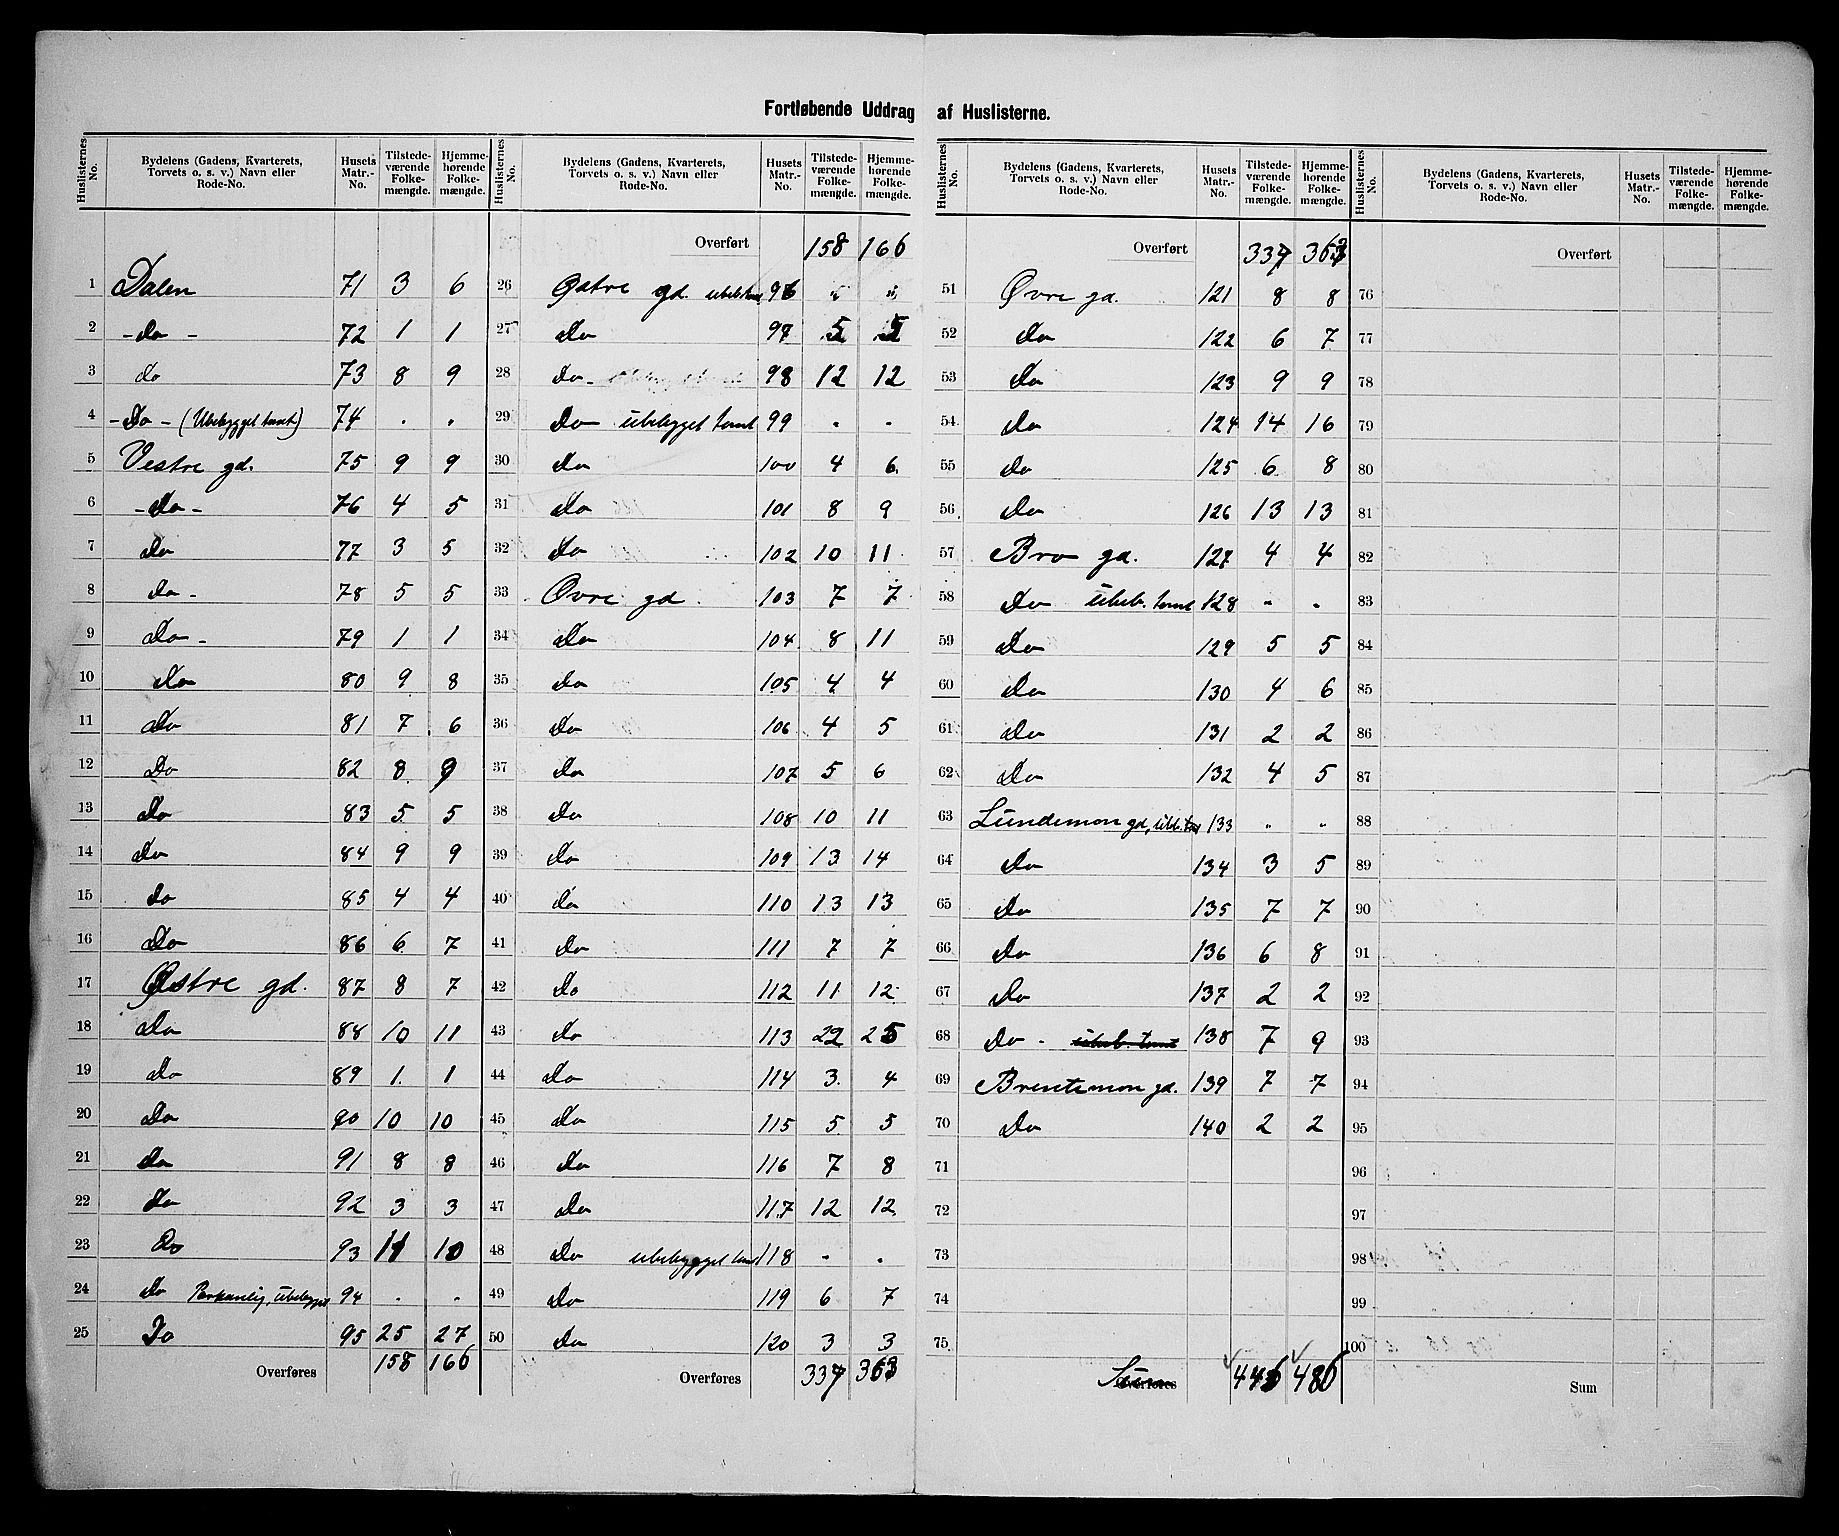 Fortløbende Uddrag af Huslisterne.
Huslisternes No. | Bydelens (Gadens, Kvarterets, Torvets o. s. v.) Navn eller Rode-No. | Husets Matr.-No. | Tilstedeværende Folkemængde. | Hjemmehørende Folkemængde.
1 Dalen 71 3 6
2 - Do - 72 1 1
3 do 73 8 9
4 - Do - (Ubebygget tomt) 74 . .
5 Vestre gd. 75 9 9
6 - Do - 76 4 5
7 Do 77 3 5
8 Do - 78 5 5
9 Do - 79 1 1
10 Do 80 9 8
11 Do 81 7 6
12 Do 82 8 9
13 Do 83 5 5
14 Do 84 9 9
15 Do 85 4 4
16 Do 86 6 7
17 Østre gd. 87 8 7
18 Do 88 10 11
19 Do 89 1 1
20 Do 90 10 10
21 Do 91 8 8
22 Do 92 3 3
23 Do 93 11 10
24 Do Parkanlig, ubebygget 94 . .
25 Do 95 25 27
Overføres 158 166
Huslisternes No. | Bydelens (Gadens, Kvarterets, Torvets o. s. v.) Navn eller Rode-No. | Husets Matr.-No. | Tilstedeværende Folkemængde. | Hjemmehørende Folkemængde.
Overført 158 166
26 Østre gd. 96
27 Do 97 5 5
28 Do - 98 12 12
29 Do ubebygget tomt 99 . .
30 Do 100 4 6
31 Do 101 8 9
32 Do 102 10 11
33 Øvre gd. 103 7 7
34 Do 104 8 11
35 Do 105 4 4
36 Do 106 4 5
37 Do 107 5 6
38 Do 108 10 11
39 Do 109 13 14
40 Do 110 13 13
41 Do 111 7 7
42 Do 112 11 12
43 Do 113 22 25
44 Do 114 3 4
45 Do 115 5 5
46 Do 116 7 8
47 Do 117 12 12
48 Do ubebygget tomt 118 . .
49 Do 119 6 7
50 Do 120 3 3
Overføres 337 363
Huslisternes No. | Bydelens (Gadens, Kvarterets, Torvets o. s. v.) Navn eller Rode-No. | Husets Matr.-No. | Tilstedeværende Folkemængde. | Hjemmehørende Folkemængde.
Overført 337 363
51 Øvre gd. 121 8 8
52 Do 122 6 7
53 Do 123 9 9
54 Do 124 14 16
55 Do 125 6 8
56 Do 126 13 13
57 Bro gd. 127 4 4
58 Do ubeb. tomt 128 . .
59 Do 129 5 5
60 Do 130 4 6
61 Do 131 2 2
62 Do 132 4 5
63 Lundemon gd, ubb. tmt 133 . .
64 Do 134 3 5
65 Do 135 7 7
66 Do 136 6 8
67 Do 137 2 2
68 Do - ubeb. tomt 138 7 9
69 Brentemon gd. 139 7 7
70 Do 140 2 2
71
72
73
74
75
Overføres Sum 446 486
Huslisternes No. | Bydelens (Gadens, Kvarterets, Torvets o. s. v.) Navn eller Rode-No. | Husets Matr.-No. | Tilstedeværende Folkemængde. | Hjemmehørende Folkemængde.
Overført
76
77
78
79
80
81
82
83
84
85
86
87
88
89
90
91
92
93
94
95
96
97
98
99
100
Sum